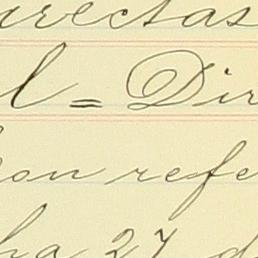 irectas
l = Dir
con refe
ha 27 d